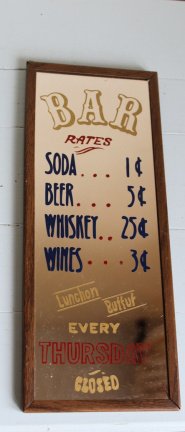 BAR
RATES
SODA... 1¢
BEER... 5¢
WHISKEY.. 25¢
WINES... 3¢
Lunchon
Buffut
EVERY
THURSDAY
CLOSED